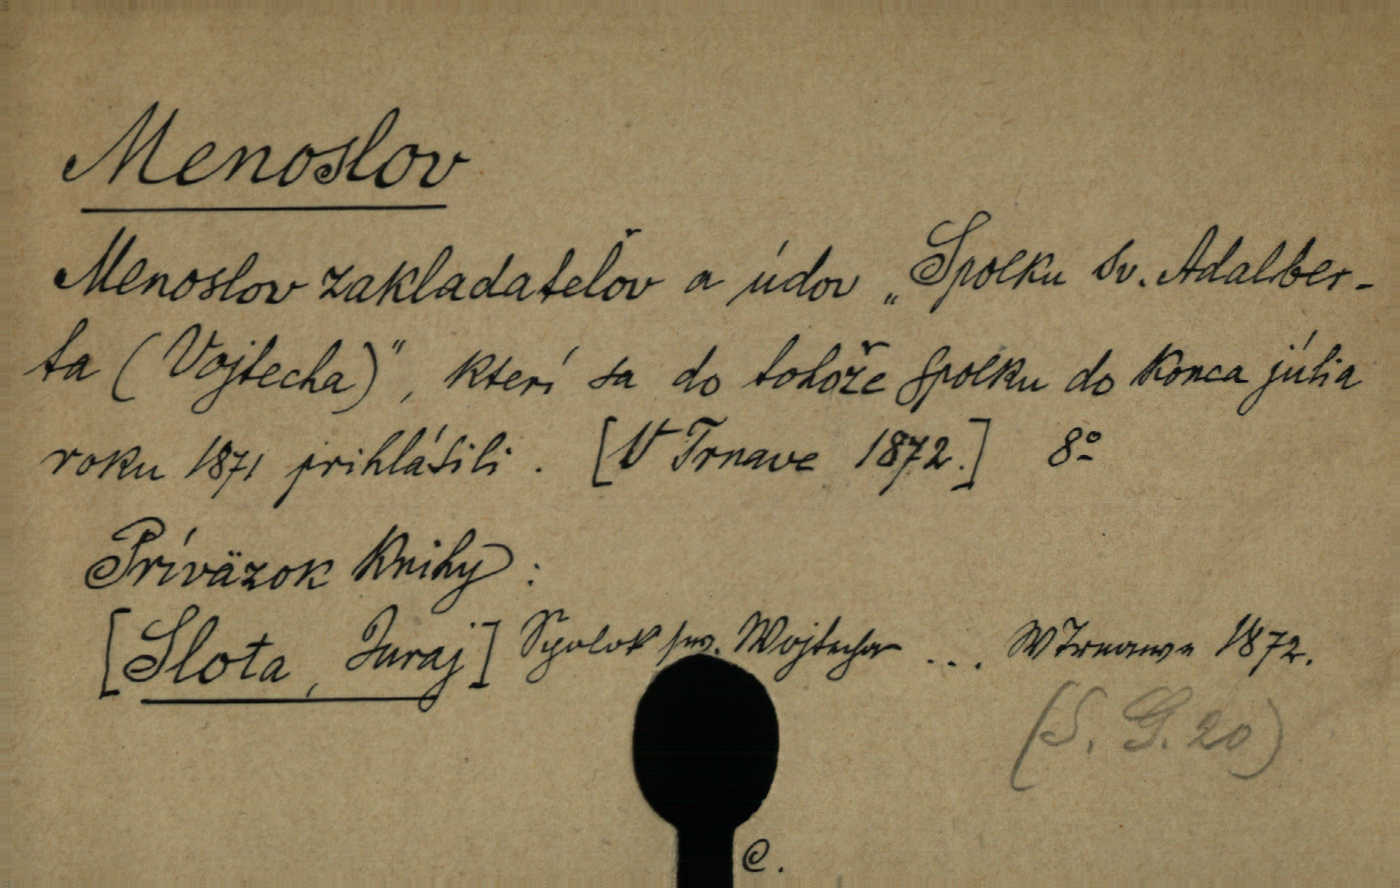 Menoslov
Menoslov zakladateľov a údov „Spolku sv. Adalber-
ta (Vojtecha)", kterí sa do tohože spolku do konca júlia
roku 1871 prihlásili. [V Trnave 1872.] 8°
Príväzok knihy:
[Slota, Juraj] Spolok sw. Wojtecha ... W Trnawe 1872.
(S. G. 20)
C.